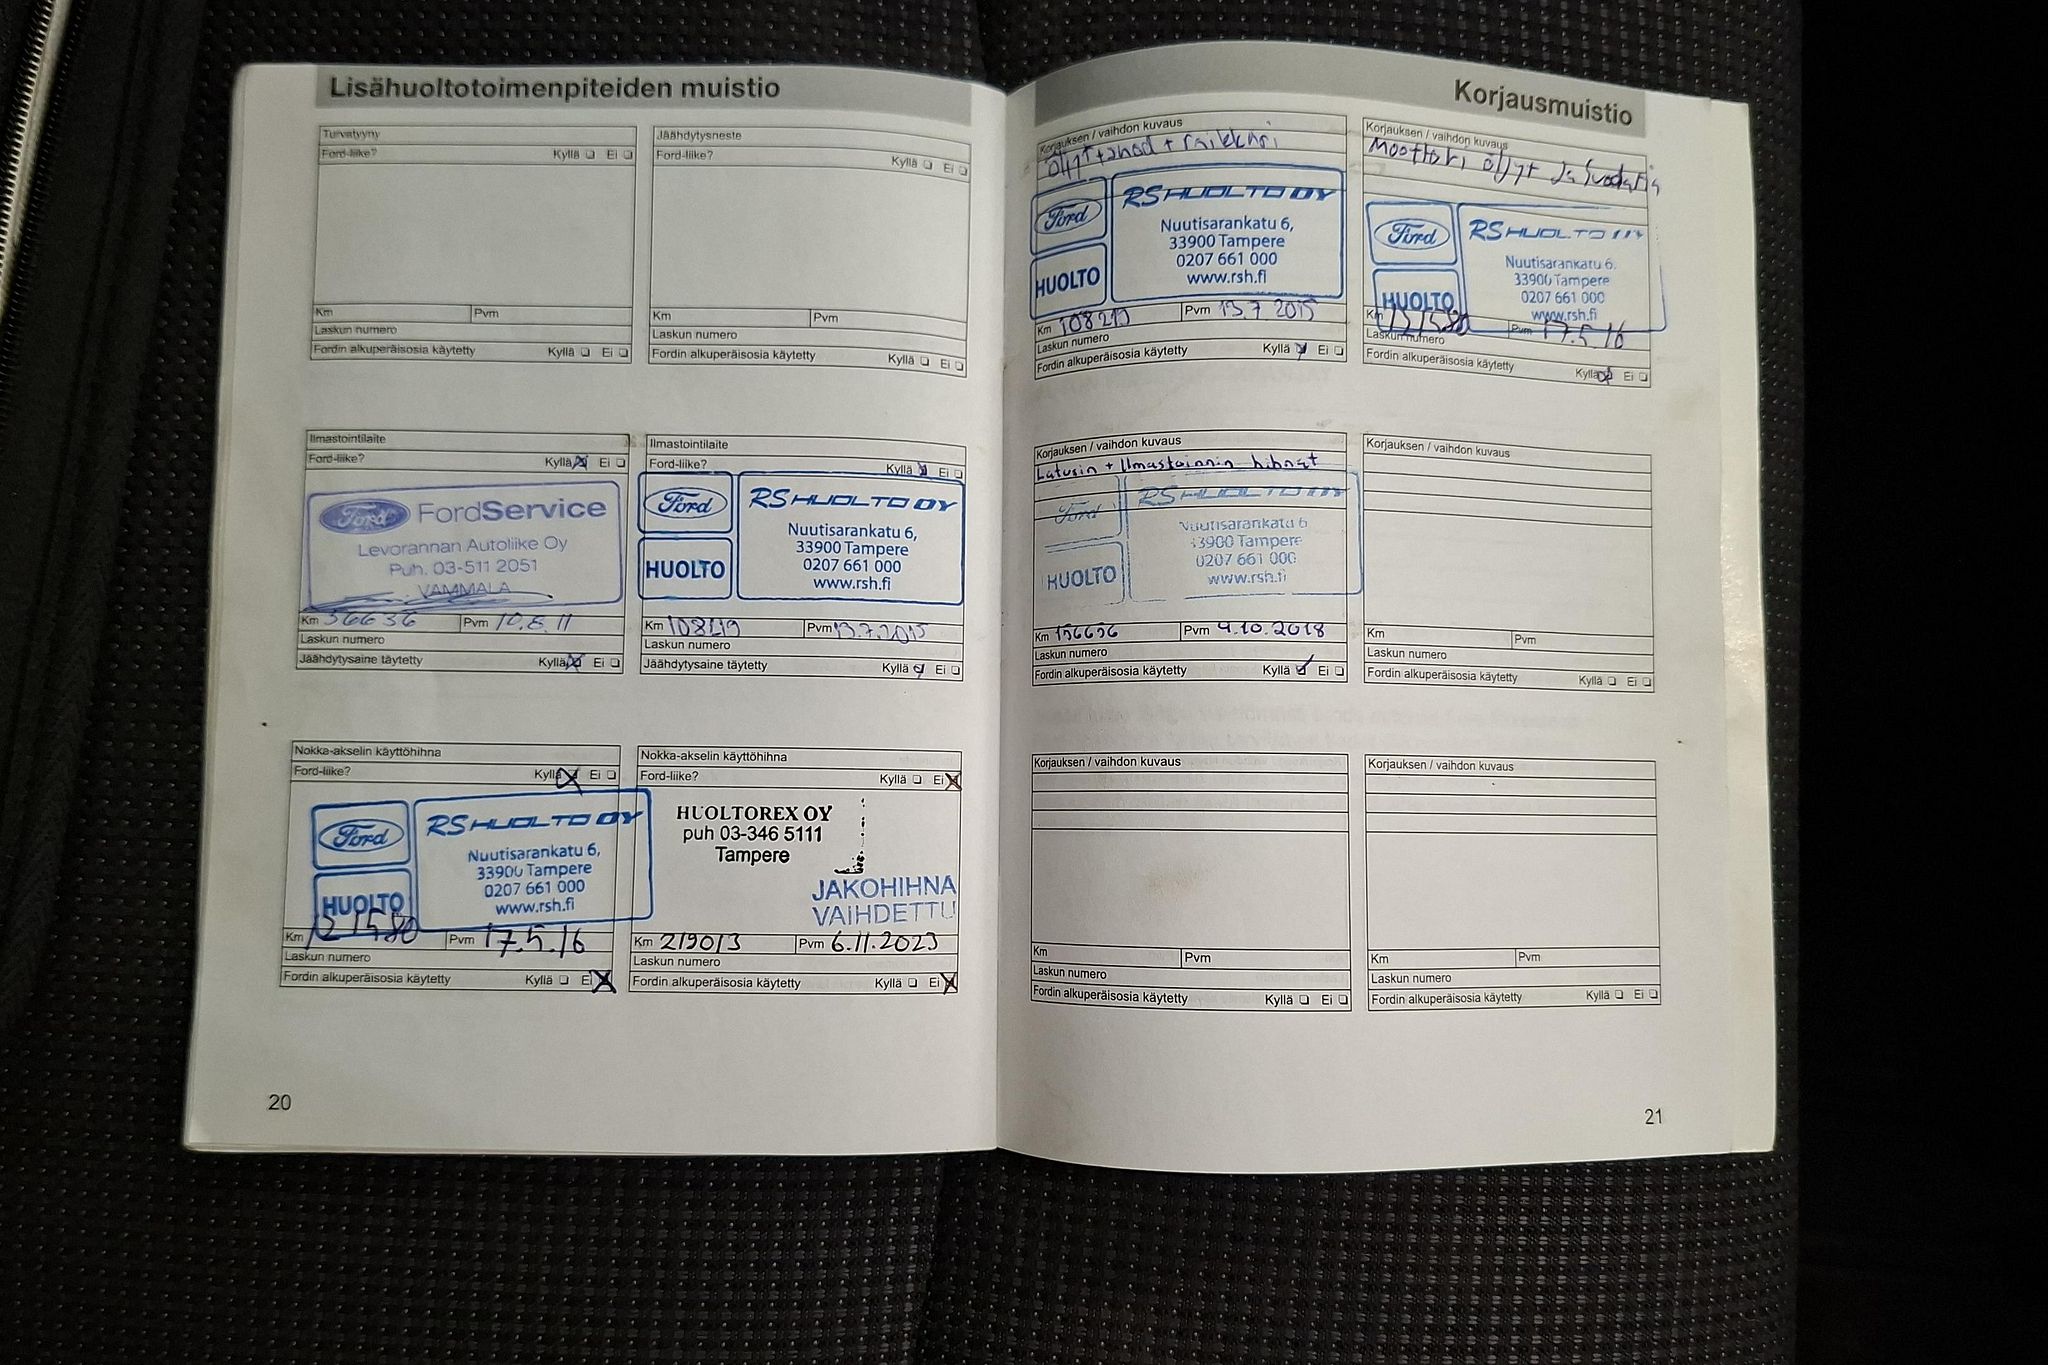 Lisähuoltotoimenpiteiden muistio
Turvatyyny
Ford-liike? Kyllä ❑ Ei ❑
Km Pvm
Laskun numero
Fordin alkuperäisosia käytetty Kyllä ❑ Ei ❑
Jäähdytysneste
Ford-liike? Kyllä ❑ Ei ❑
Km Pvm
Laskun numero
Fordin alkuperäisosia käytetty Kyllä ❑ Ei ❑
Ilmastointilaite
Ford-liike? Kyllä ☒ Ei ❑
Ford FordService
Levorannan Autoliike Oy
Puh. 03-511 2051
VAMMALA
Km 36636 Pvm 10.6.11
Laskun numero
Jäähdytysaine täytetty Kyllä ☒ Ei ❑
Ilmastointilaite
Ford-liike? Kyllä ☒ Ei ❑
Ford RS HUOLTO OY
Nuutisarankatu 6,
33900 Tampere
HUOLTO 0207 661 000
www.rsh.fi
Km 108219 Pvm 13.7.2015
Laskun numero
Jäähdytysaine täytetty Kyllä ☑ Ei ❑
Nokka-akselin käyttöhihna
Ford-liike? Kyllä ☒ Ei ❑
Ford RS HUOLTO OY
Nuutisarankatu 6,
33900 Tampere
0207 661 000
HUOLTO www.rsh.fi
Km 121580 Pvm 17.5.16
Laskun numero
Fordin alkuperäisosia käytetty Kyllä ❑ Ei ☒
Nokka-akselin käyttöhihna
Ford-liike? Kyllä ❑ Ei ☒
HUOLTOREX OY
puh 03-346 5111
Tampere
JAKOHIHNA
VAIHDETTU
Km 219013 Pvm 6.11.2023
Laskun numero
Fordin alkuperäisosia käytetty Kyllä ❑ Ei ☒
20
Korjausmuistio
Korjauksen / vaihdon kuvaus
öljyt + suod + raikkuri
Ford RS HUOLTO OY
Nuutisarankatu 6,
33900 Tampere
HUOLTO 0207 661 000
www.rsh.fi
Km 108219 Pvm 13.7 2015
Laskun numero
Fordin alkuperäisosia käytetty Kyllä ☑ Ei ❑
Korjauksen / vaihdon kuvaus
Moottori öljyt ja suodatin
Ford RS HUOLTO OY
Nuutisarankatu 6,
33900 Tampere
HUOLTO 0207 661 000
www.rsh.fi
Km 121580 Pvm 17.5.16
Laskun numero
Fordin alkuperäisosia käytetty Kyllä ☑ Ei ❑
Korjauksen / vaihdon kuvaus
Laturin + Ilmastoinnin hihnat
Ford RS HUOLTO OY
Nuutisarankatu 6
33900 Tampere
HUOLTO 0207 661 000
www.rsh.fi
Km 156656 Pvm 4.10.2018
Laskun numero
Fordin alkuperäisosia käytetty Kyllä ☑ Ei ❑
Korjauksen / vaihdon kuvaus
Km Pvm
Laskun numero
Fordin alkuperäisosia käytetty Kyllä ❑ Ei ❑
Korjauksen / vaihdon kuvaus
Km Pvm
Laskun numero
Fordin alkuperäisosia käytetty Kyllä ❑ Ei ❑
Korjauksen / vaihdon kuvaus
Km Pvm
Laskun numero
Fordin alkuperäisosia käytetty Kyllä ❑ Ei ❑
21